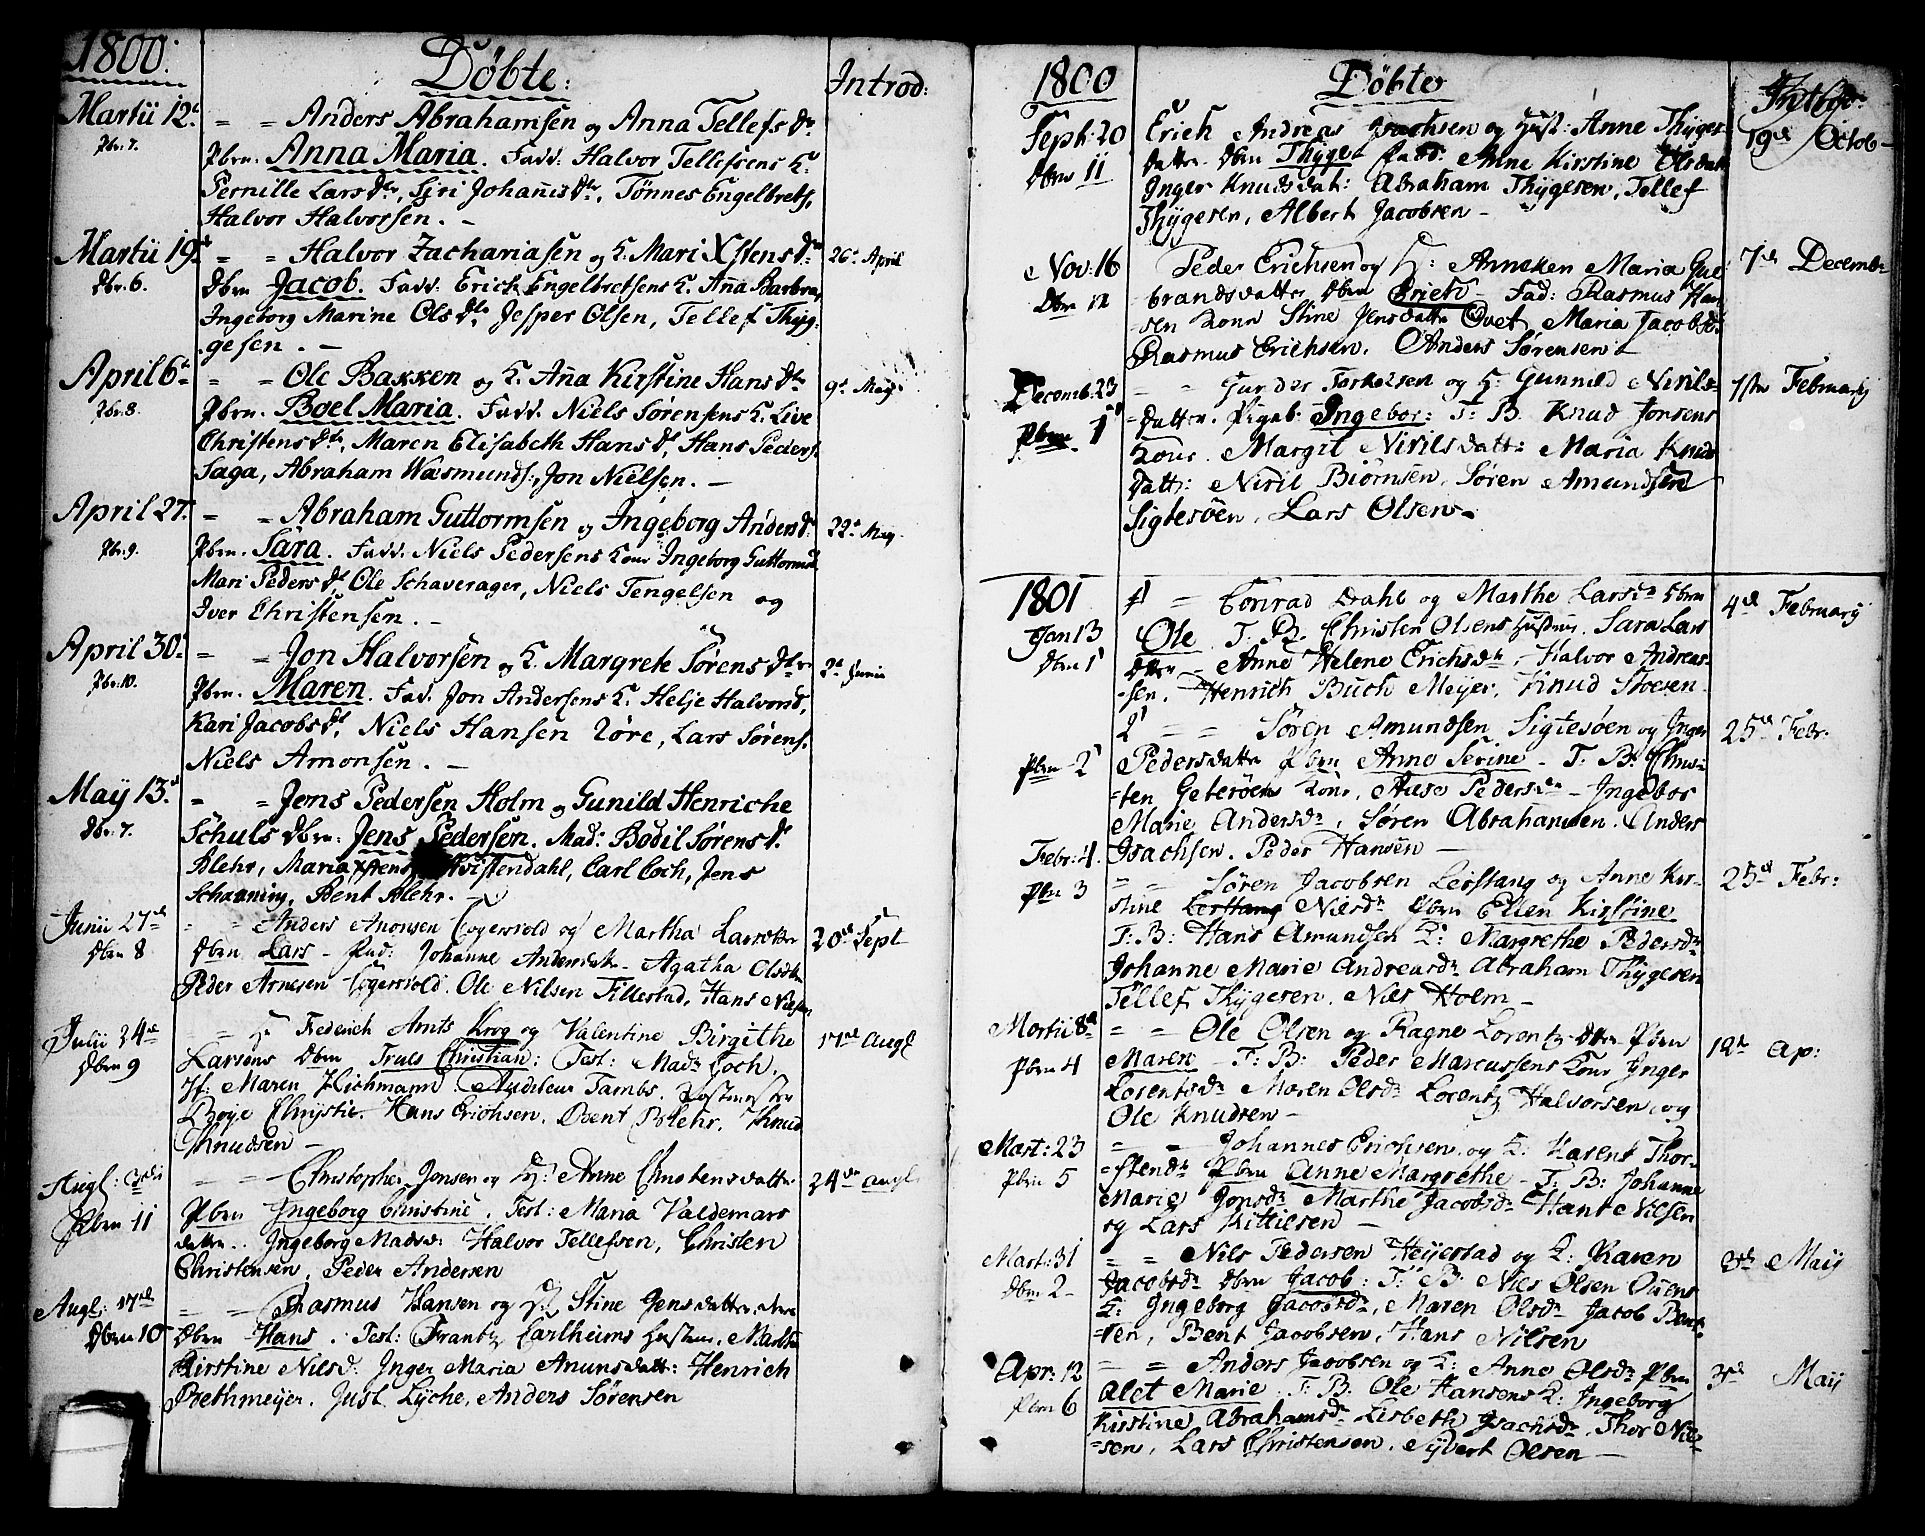 1800.
Döbte:
Introd:
Martii 12t
Pbr. 7.
= = Anders Abrahamsen og Anna Tellefs Dr
Pbrn. Anna Maria. Fadd. Halvor Tellefsens K.
Pernille Lars Dtr, Siri Johanis Dtr, Tönnes Engelbrets,
Halvor Halvorsen. –
Martii 19.
Dbr. 6.
= = Halvor Zachariasen og K. Mari Xstens Dr
26t April
Dbrn Jacob. Fadd. Erick Engelbretsens K. Aña Barbra,
Ingeborg Marine Ols Dtr Jesper Olsen, Tellef Thyg:
gesen. –
April 6t
Pbr. 8.
= = Ole Bakken og K. Aña Kirstine Hans Dtr
9t May
Pbrn. Boel Maria. Fadd. Niels Sörensens K. Live
Christens Dtr, Maren Elisabeth Hans Dt, Hans Peders.
Saga, Abraham Wasmunds:, Jon Nielsen. –
April 27.
Pbr. 9.
= = Abraham Guttormsen og Ingeborg Anders D.
22t May
Pbrn. Sara. Fadd. Niels Pedersens Kone Ingeborg Guttormsd
Mari Peders Dt, Ole Schaverager, Niels Tengelsen og
Iver Christensen. –
April 30.
Pbr. 10.
= = Jon Halvorsen og K. Margrete Sörens Dtr
2t Junii
Pbrn. Maren. Fad. Jon Andersens K. Helje Halvorsd,
Kari Jacobs Dt, Niels Hansen Löre, Lars Sörens.
Niels Amonsen. –
May 13.
Dbr. 7.
= = Jens Pedersen Holm og Gunild Henriche
Schuls Dbrn: Jens Pedersen. Mad: Bodil Sörens Dr
Blehr, Maria Xstens Qvistendahl, Carl Coch, Jens
Schanning, Bent Blehr.
Junii 27de
Dbrn 8
Anders Anonsen og Martha Larsdtter
20de Sept
Dbrn Lars – Fad: Johanne Andersdatr – Agatha Olsdtr
Peder Arnesen Ole Nilsen Tillestad, Hans Nielsen
Julii 24de
Dbrn 9
= Hr Frederich Arnts Krog og Valentine Birgithe
17de Augt
Larsens Dbrn Truls Christian: Test: Mad: Coch,
Jf: Maren Hichmann Auditeur Tambs. Postmester
Boye Chrystie. Hans Erichsen. Bent Blehr. Knud
Knudsen –
Augt: 3die
Pbrn 11
= = Christopher Jonsen og K: Anne Christensdatter
24de Augt
Pbrn Ingeborg Christine. Test: Maria Valdemars
datter. Ingeborg Madsd: Halvor Tellefsen, Christen
Christensen, Peder Andersen
Augt: 17de
Dbrn 10
= = Rasmus Hansen og K Stine Jensdatter deres
Dbrn Hans. Test: Frantz Carlheims Hustrue, Marthe
Kirstine Nilsd. Inger Maria Amunsdatt: Henrich
Rethmeyer. Just Lyche, Anders Sörensen
1800
Döbte
Septb: 20
Dbrn 11
Erich Andreas Isachsen og Hust: Anne Thyges
19de Octob –
datter. Dbrn Thyge. Fadd: Anne Kirstine Olsdatt
Inger Knudsdat: Abraham Thygesen, Tellef
Thygesen, Albert Jacobsen –
Nov: 16
Dbrn 12
Peder Erichsen og K: Anneken Maria Gul
7de Decembr
brandsdatter Dbrn Erich – Fad: Rasmus Han
sen Kone Stine Jensdatter Maria Jacobsd
Rasmus Erichsen. Anders Sörensen –
Decemb. 23
= = Gunder Torkelsen og K: Gunnild Nirils
1ste Februarij
datter. Pigeb: Ingebor: F: B. Knud Jonsens
Kone. Margit Nirilsdatt: Maria Knuds
datt: Niril Biörnsen, Sören Amundsen
Sigtesöen, Lars Olsen –
1801
Jan 13
Dbrn 1
1 = Conrad Dahl og Marthe Larsdr Dbrn
4de Februarij
Ole F. B. Christen Olsens Hustrue. Sara Lars
dtter – Anne Helene Erichsdtr, Halvor Andreas
sen. Henrich Buch Meyer, Knud
2 = = Sören Amundsen Sigtesöen og Inger
25de Febr:
Pbrn 2
Pedersdatter Pbrn Anne Serine – F. B: Chris
ten Geteröen Kone, Aase Pedersdr – Ingebor
Marie Andersdr, Sören Abrahamsen. Anders
Isachsen. Peder Hansen –
Febr: 4.
Pbrn 3
= = Sören Jacobsen Lerstang og Anne Kir
25de Febr:
stine Lerstang Nielsdr Pbrn Ellen Kirstine
F: B: Hans Amundsen K: Margrethe Pedersdr
Johanne Marie Andreasdr Abraham Thygesen
Tellef Thygesen. Niels Holm –
Martii 8d
Pbrn 4
= = Ole Olsen og Ragne Lorentz dtter Pbrn
12t Ap:
Maren – F: B: Peder Marcussens Kone Inger
Lorentsdr Maren Olsdr Lorentz Halvorsen, og
Ole Knudsen –
Mart: 23
Pbrn 5
= = Johannes Erichsen og K: Karen Thor
stendr Pbrn Anne Margrethe – F: B: Johanne
Marie Jonsdr Marthe Jacobsdr Nilsen
og Lars Kittilsen –
Mart: 31
Dbrn 2
= = Nils Pedersen Heyerstad og K: Karen
3de Maij
Jacobsdr Dbrn Jacob: F: B: Niels Olsen
K: Ingeborg Jacobsdr, Maren Olsdr Jacob Bent
sen, Bent Jacobsen, Hans Nilsen
Apr: 12
Pbrn 6
= = Anders Jacobsen og K: Anne Olsdr Pbrn
3de Maij
Olet Marie. F. B: Ole Hansens K: Ingeborg
Kirstine Abrahamsdr Lisbeth Isachsdr Thor Niel
sen, Lars Christensen, Syvert Olsen –